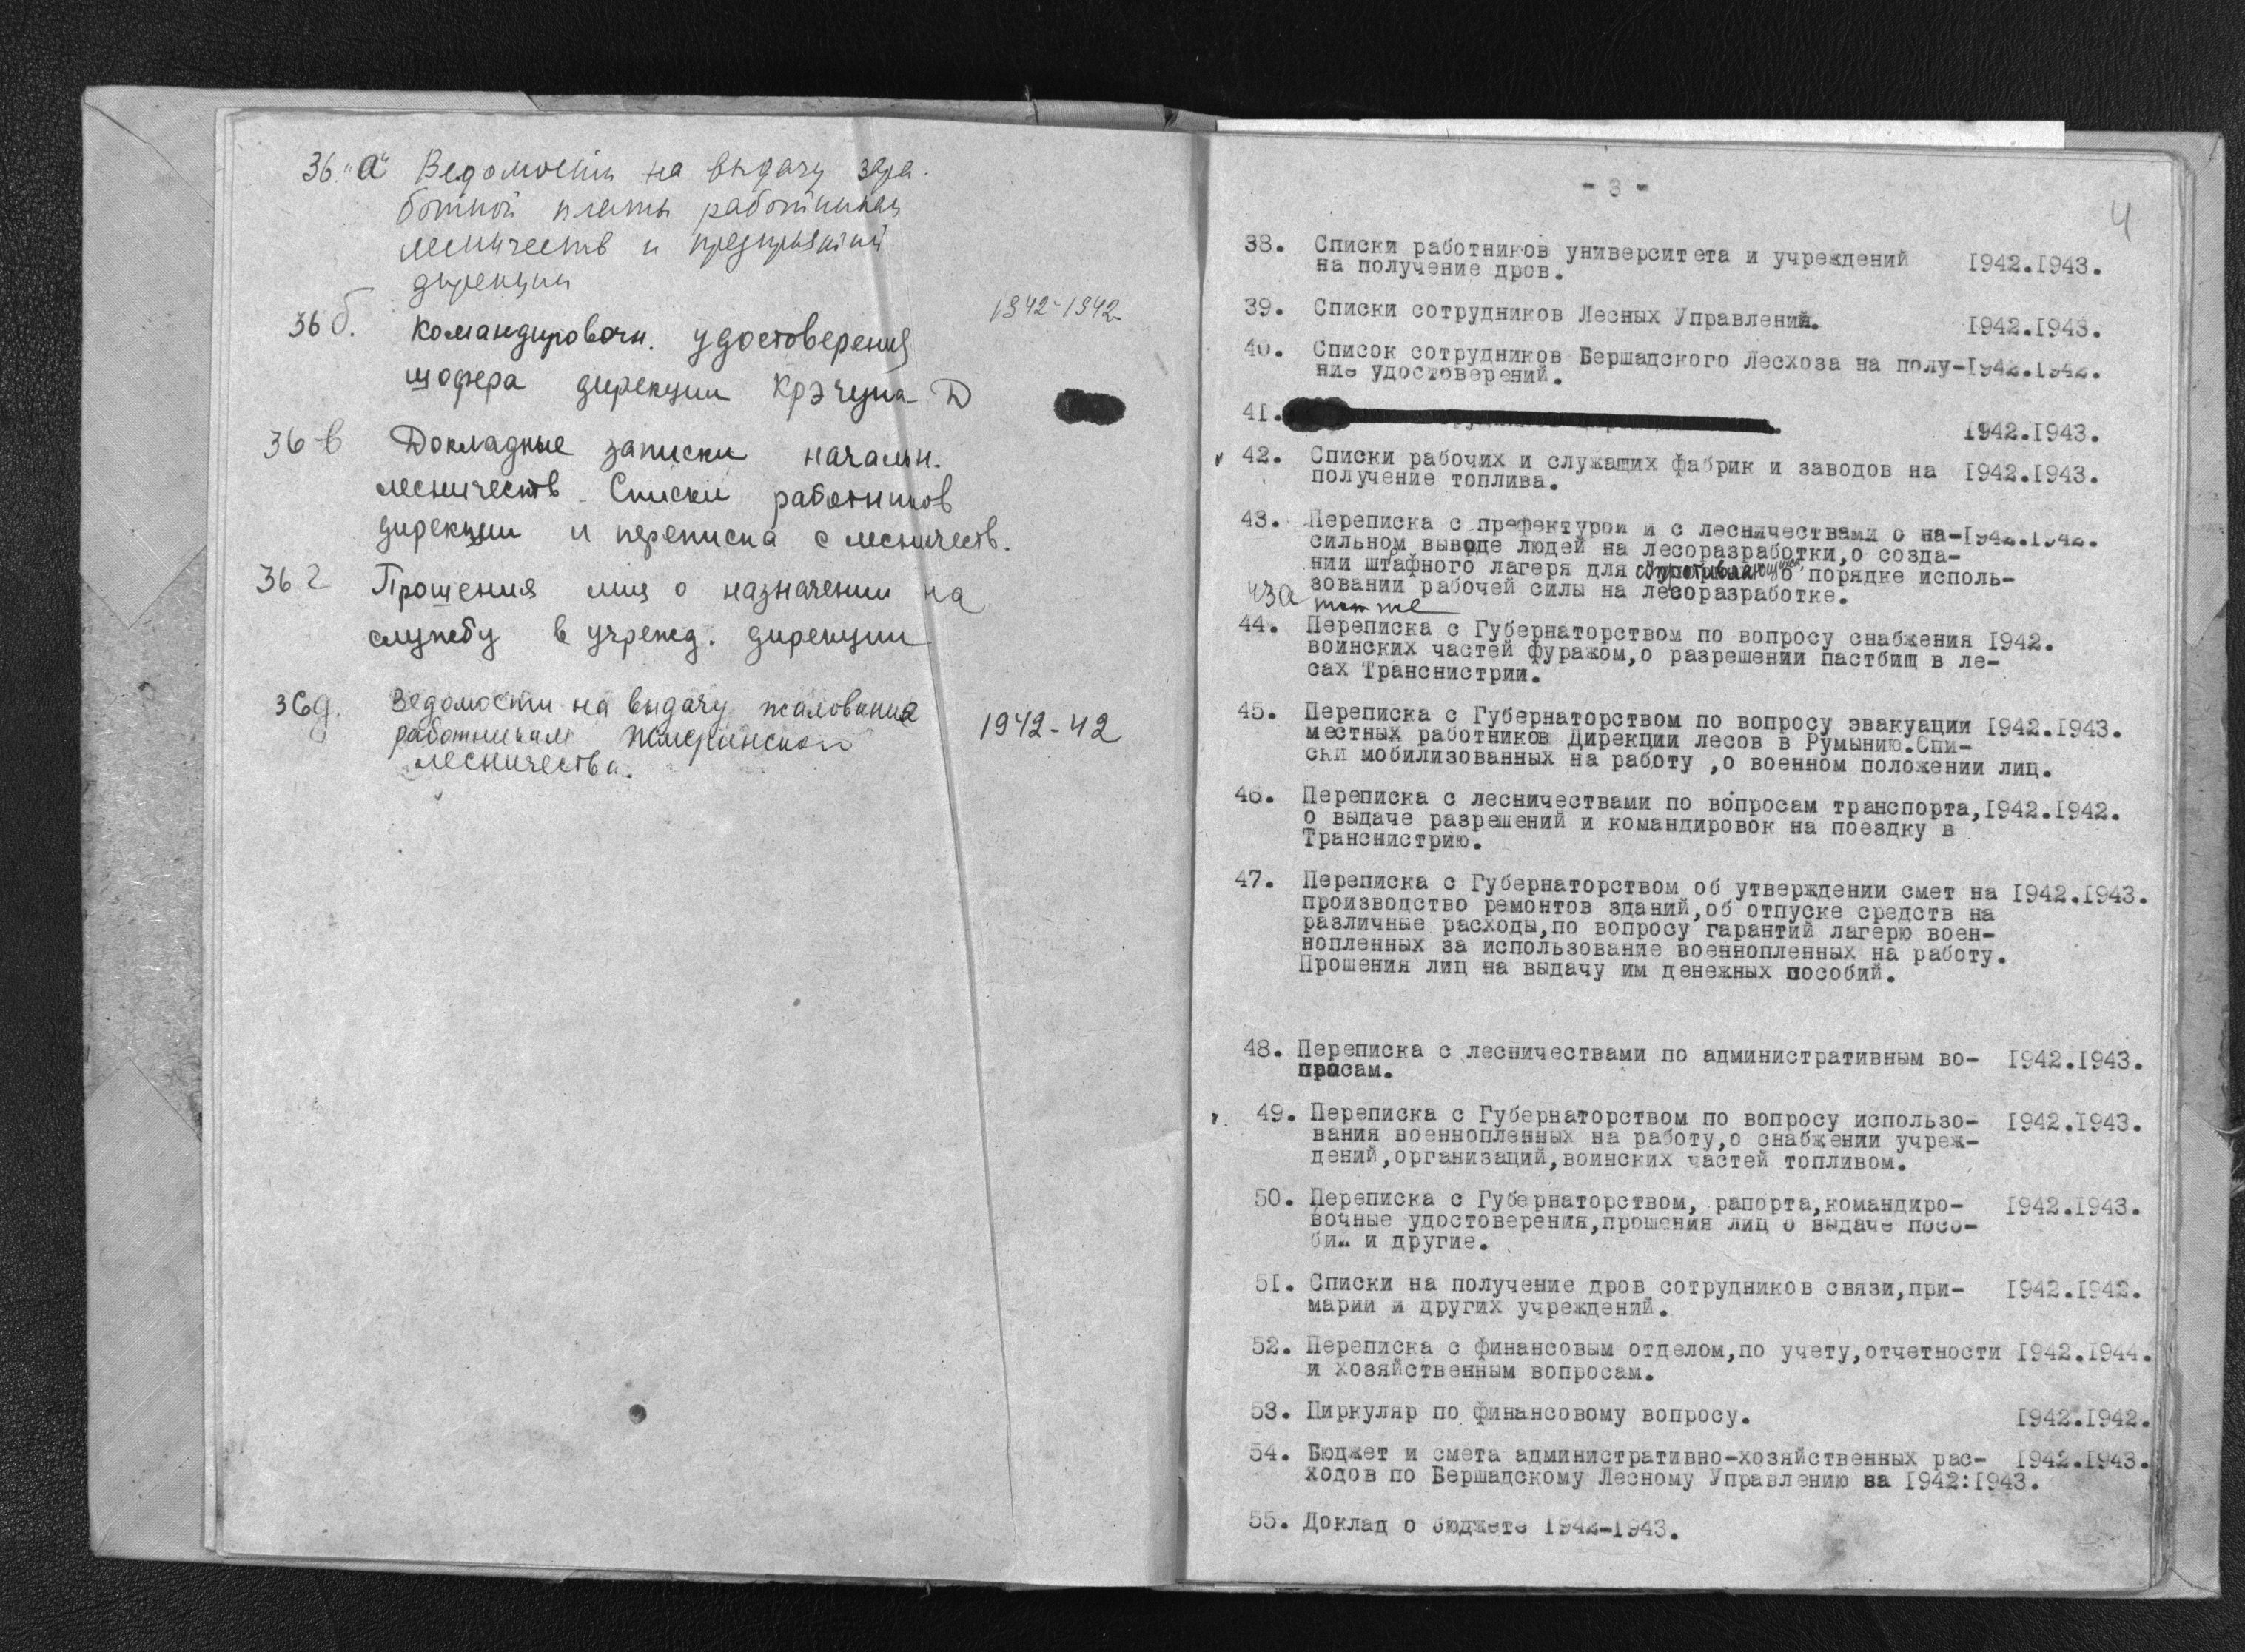 36 "а" Ведомости на выдачу зара-
ботной платы работникам
лесничеств и предприятий
дирекции
36 б. Командировочн. удостоверения 1942-1942
шофера дирекции Крэчуна Д
36-в Докладные записки начальн.
лесничеств. Списки работников
дирекции и переписка с лесничеств.
36 г Прошения лиц о назначении на
службу в учрежд. дирекции
36д. Ведомости на выдачу жалования 1942-42
работникам
лесничества.
- 3 -
4
38. Списки работников университета и учреждений I942.I943.
на получение дров.
39. Списки сотрудников Лесных Управлений. I942.I943.
40. Список сотрудников Бершадского Лесхоза на полу-I942.I942.
ние удостоверений.
4I. I942.I943.
42. Списки рабочих и служащих фабрик и заводов на I942.I943.
получение топлива.
43. Переписка с префектурой и с лесничествами о на-I942.I942.
сильном выводе людей на лесоразработки,о созда-
нии штафного лагеря для сопротивляющихся,о порядке исполь-
зовании рабочей силы на лесоразработке.
43а то же
44. Переписка с Губернаторством по вопросу снабжения I942.
воинских частей фуражом,о разрешении пастбищ в ле-
сах Транснистрии.
45. Переписка с Губернаторством по вопросу эвакуации I942.I943.
местных работников Дирекции лесов в Румынию.Спи-
ски мобилизованных на работу ,о военном положении лиц.
46. Переписка с лесничествами по вопросам транспорта,I942.I942.
о выдаче разрешений и командировок на поездку в
Транснистрию.
47. Переписка с Губернаторством об утверждении смет на I942.I943.
производство ремонтов зданий,об отпуске средств на
различные расходы,по вопросу гарантий лагерю воен-
нопленных за использование военнопленных на работу.
Прошения лиц на выдачу им денежных пособий.
48. Переписка с лесничествами по административным во- I942.I943.
просам.
49. Переписка с Губернаторством по вопросу использо- I942.I943.
вания военнопленных на работу,о снабжении учреж-
дений,организаций,воинских частей топливом.
50. Переписка с Губернаторством, рапорта,командиро- I942.I943.
вочные удостоверения,прошения лиц о выдаче посо-
бий и другие.
5I. Списки на получение дров сотрудников связи,при- I942.I942.
марии и других учреждений.
52. Переписка с финансовым отделом,по учету,отчетности I942.I944.
и хозяйственным вопросам.
53. Циркуляр по финансовому вопросу. I942.I942.
54. Бюджет и смета административно-хозяйственных рас- I942.I943.
ходов по Бершадскому Лесному Управлению на I942:I943.
55. Доклад о бюджете I942-I943.